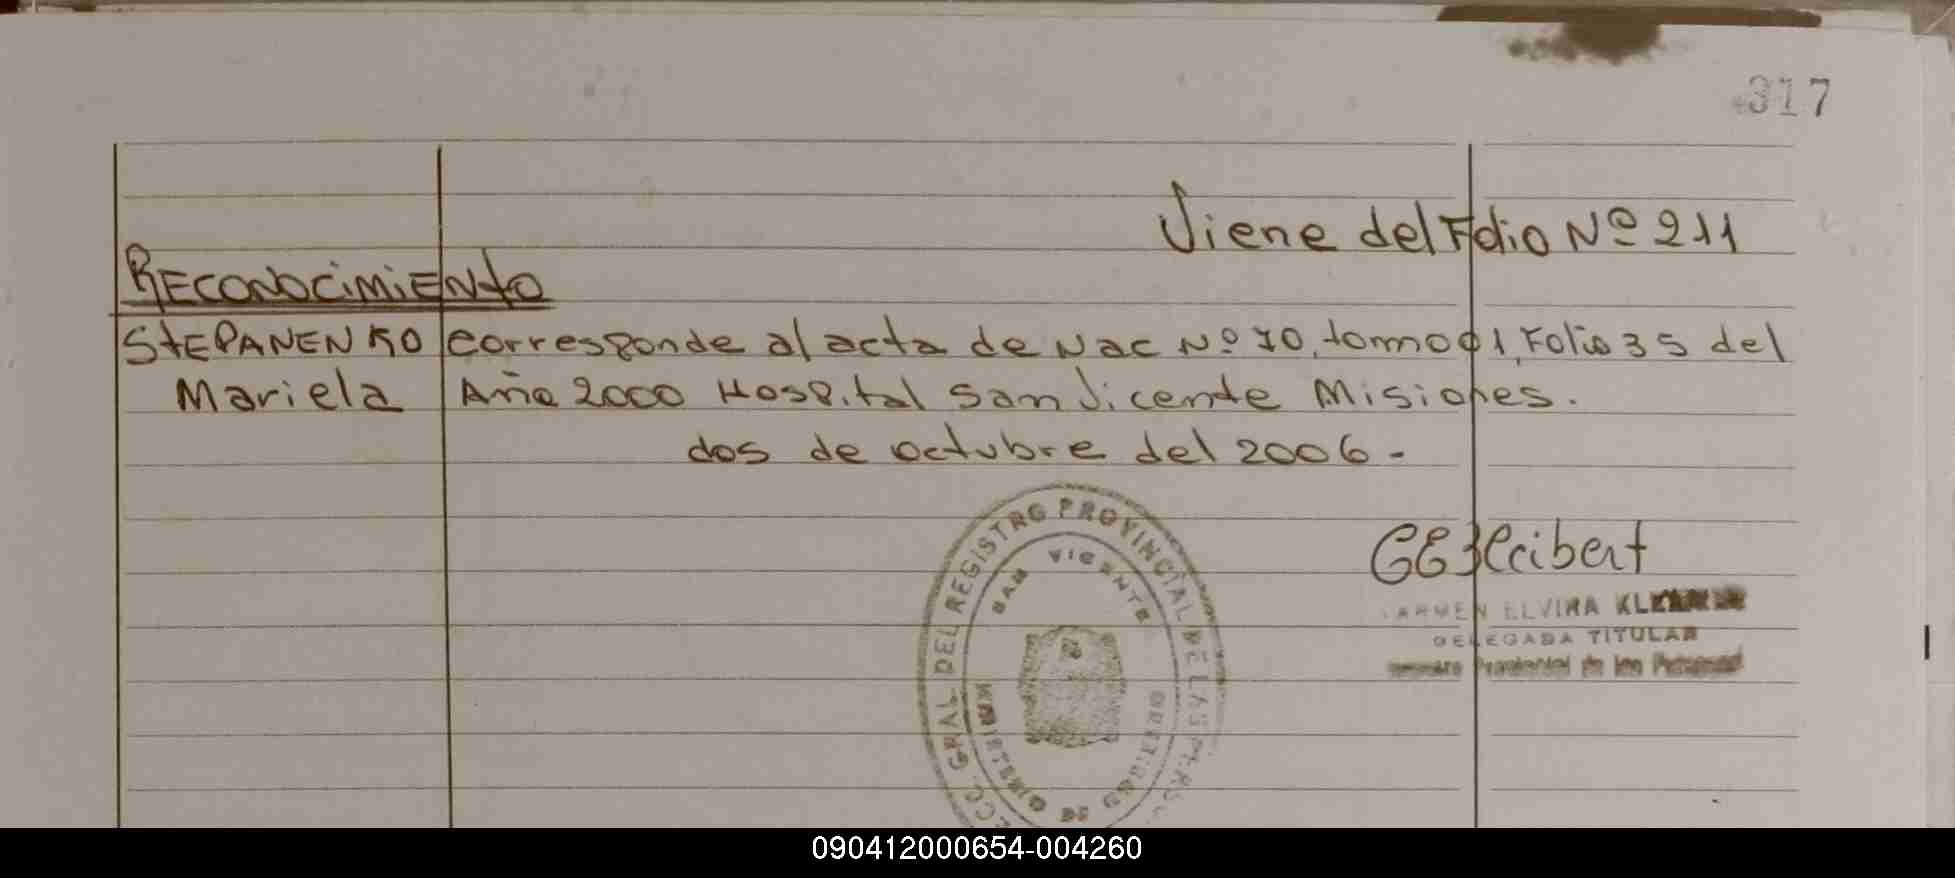 317
Viene del Folio Nº 211
RECONOCIMIENTO
STEPANENKO corresponde al acta de Nac Nº 70, tomo 01, Folio 35 del
Mariela Año 2000 Hospital San Vicente Misiones.
dos de octubre del 2006 -
GRAL. DEL REGISTRO PROVINCIAL DE LAS
SAN VICENTE
CARMEN ELVIRA
DELEGADA TITULAR
Provincial de las Personas
090412000654-004260